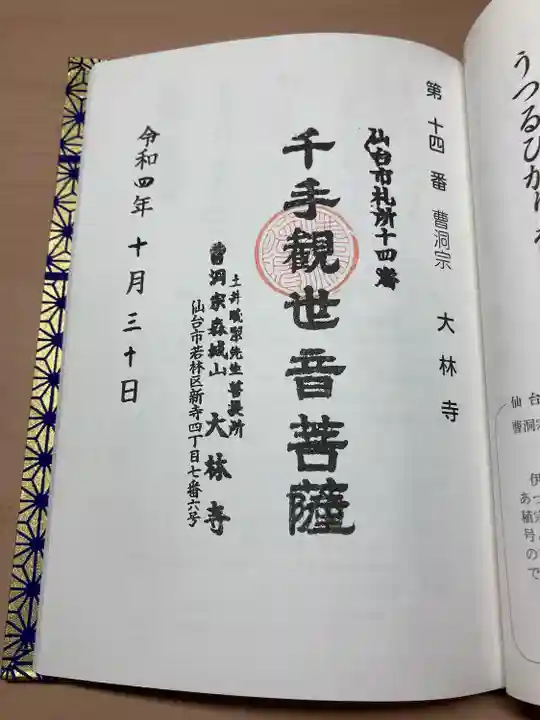 うつるひかり
仙台
曹洞宗
伊
あつ
稙宗
号
の
で
第十四番 曹洞宗 大林寺
仙台市札所十四番
千手観世音菩薩
土井晩翠先生菩提所
曹洞宗森城山 大林寺
仙台市若林区新寺四丁目七番六号
令和四年十月三十日